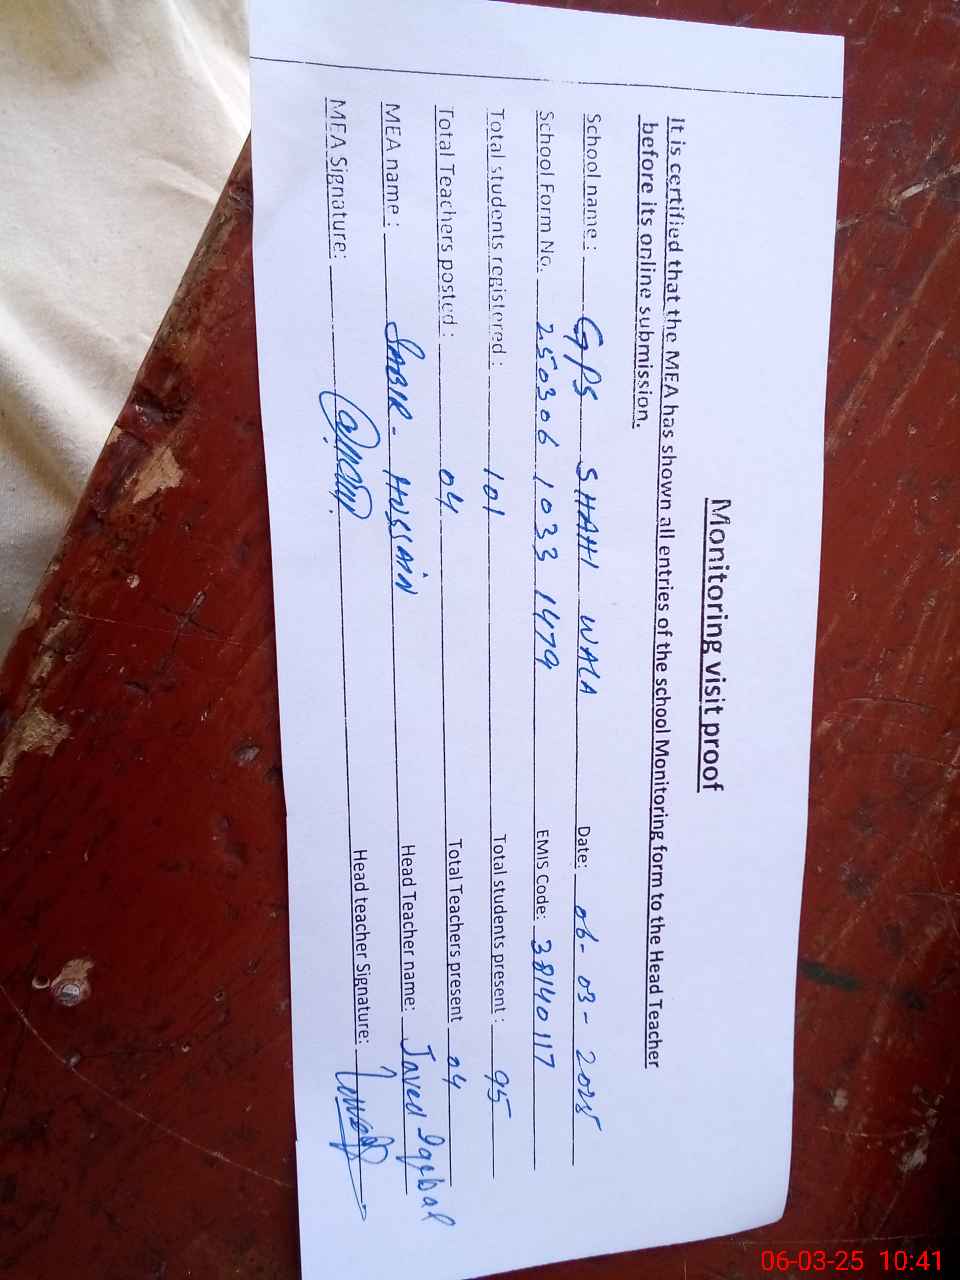 Monitoring visit proof
It is certified that the MEA has shown all entries of the school Monitoring form to the Head Teacher
before its online submission.
School name : GPS SHAHI WALA Date: 06-03-2025
School Form No. 250306 1033 1479 EMIS Code: 38140117
Total students registered : 101 Total students present : 95
Total Teachers posted : 04 Total Teachers present 04
MEA name : SABIR- HUSSAIN Head Teacher name: Javed Iqbal
MEA Signature: Head teacher Signature:
06-03-25 10:41